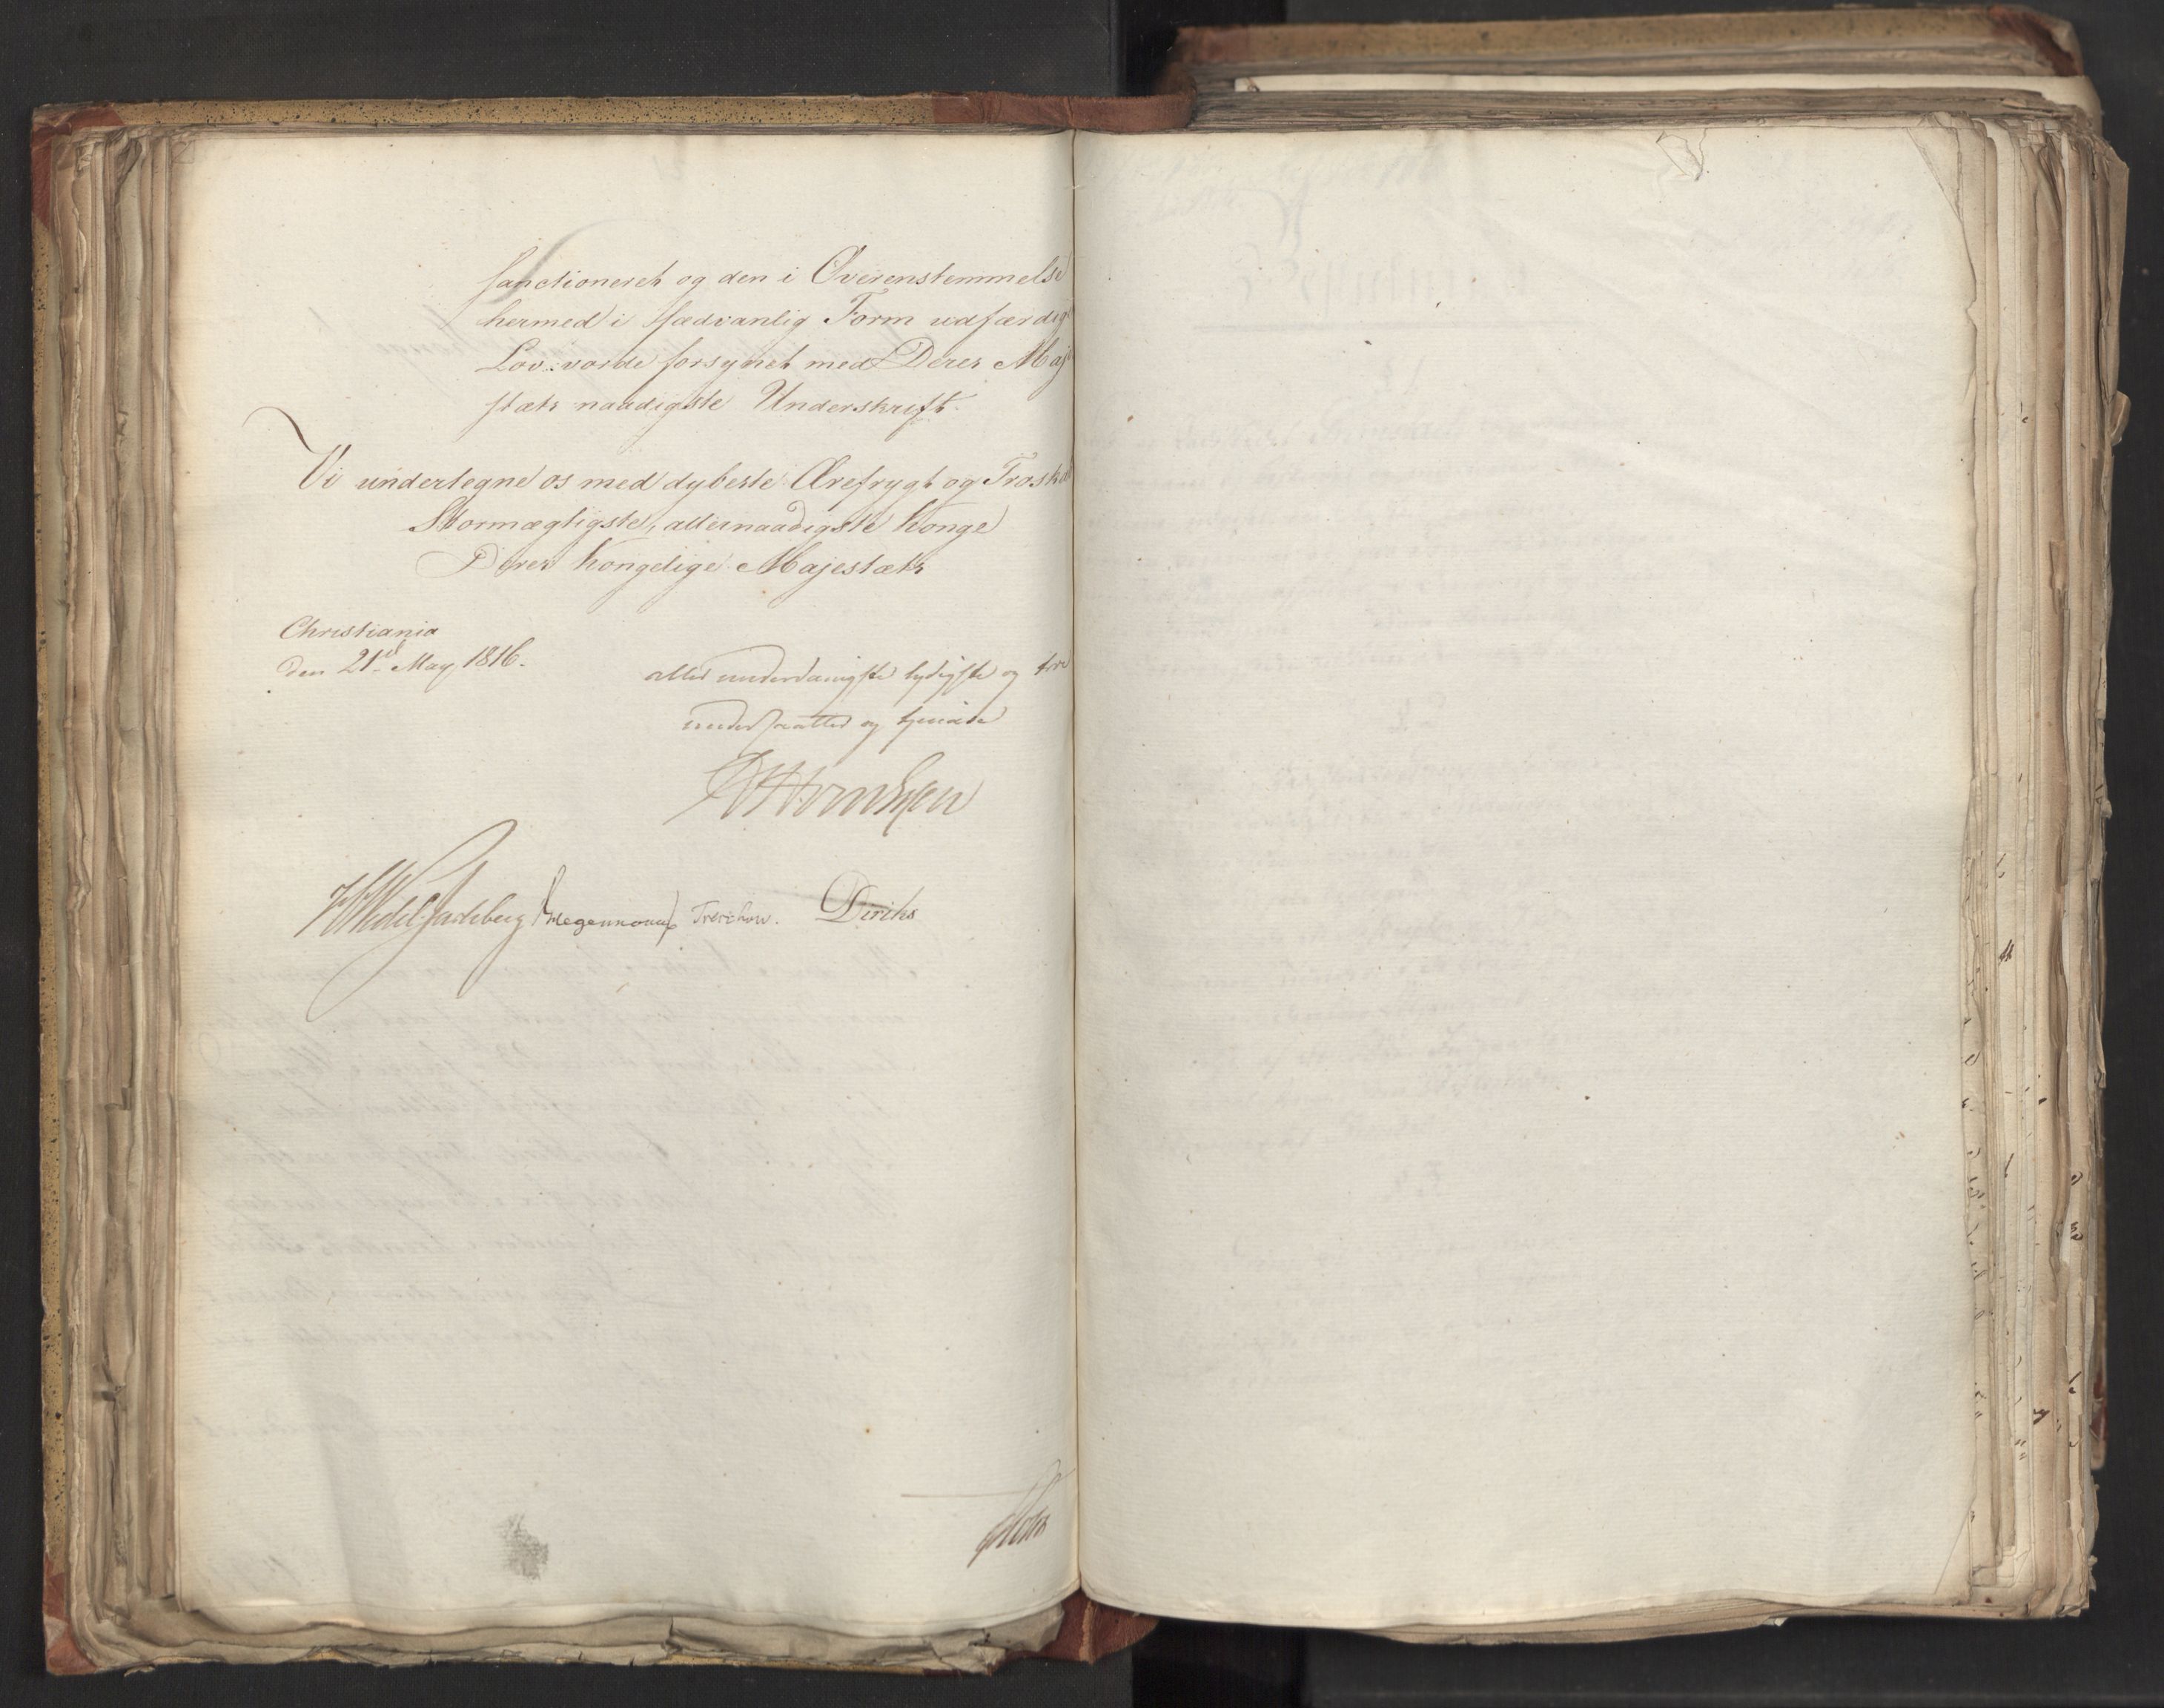 sanctioneret og den i Overenstemmelse
hermed i sædvanlig Form udfærdig
Lov vorde forsynet med Deres Maj
stæts naadigste Underskrift.
Vi undertegne os med dybeste Ærefrygt og Troskab
Stormægtigste, allernaadigste Konge
Deres Kongelige Majestæts
Christiania
den 21de May 1816.
allerunderdanigste lydigste og troe
undersaatter og tjenere
Wedel Jarlsberg Krogh Treschow. Diriks